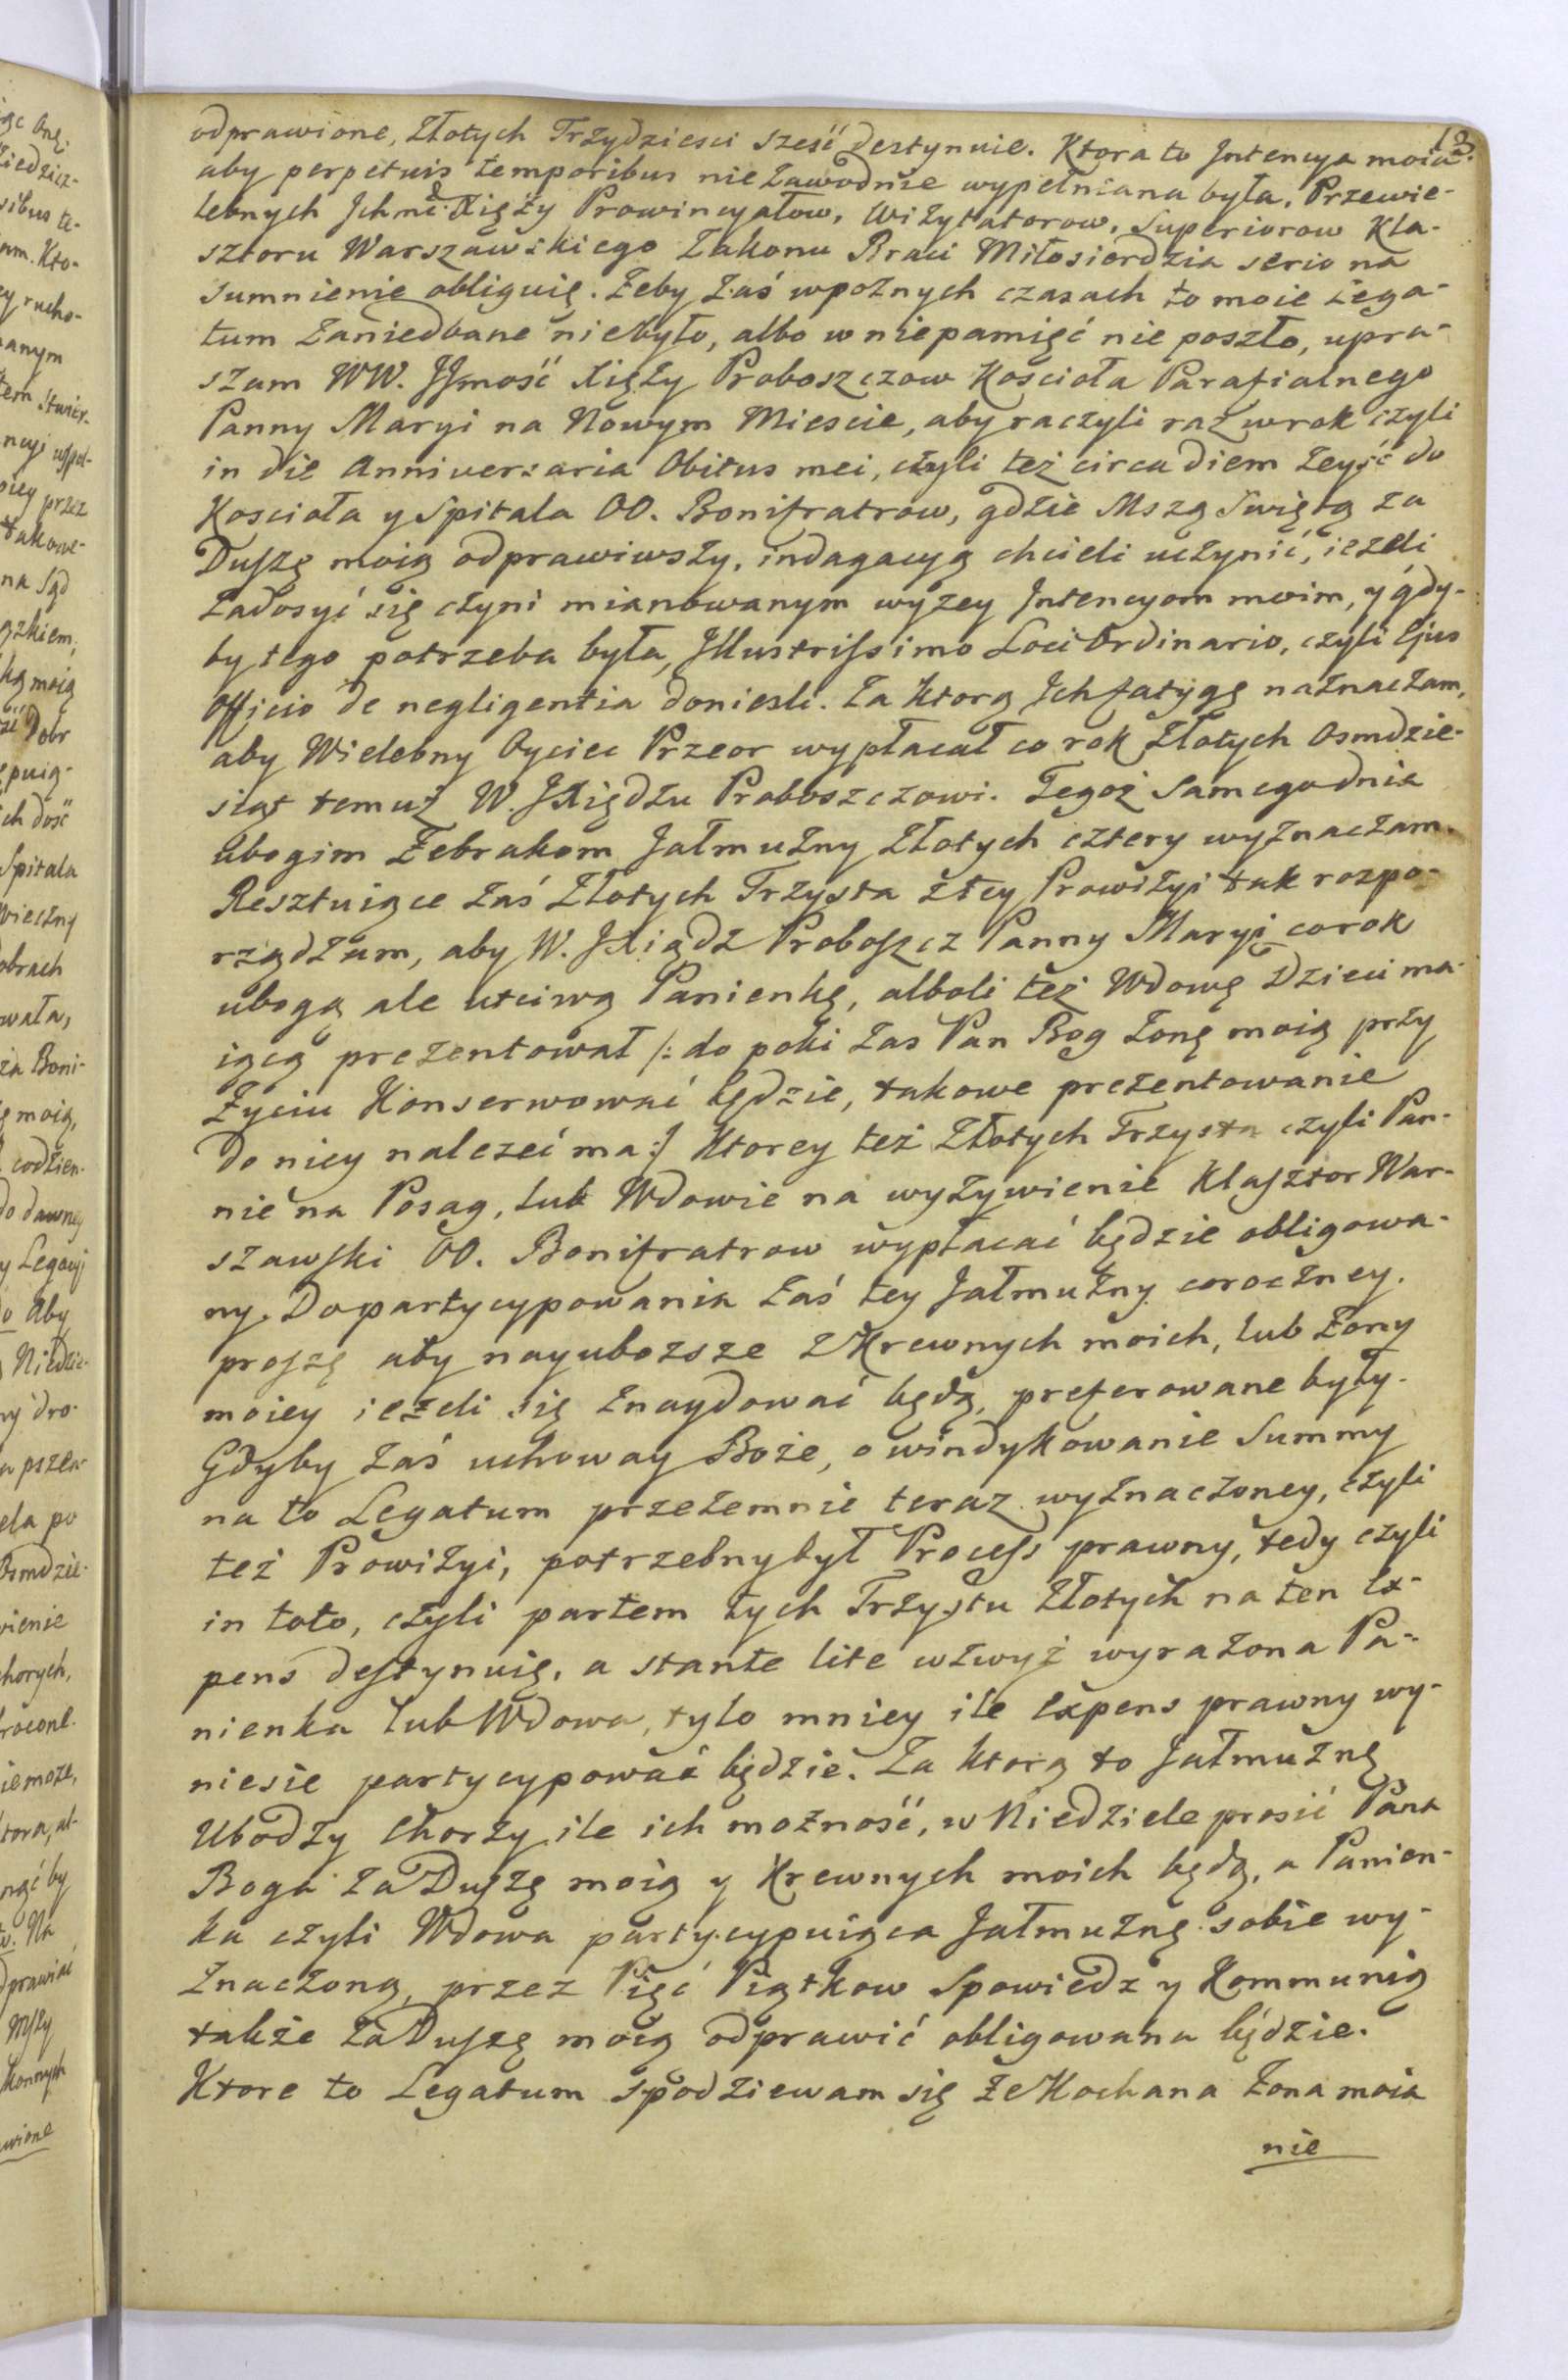 13.
odprawione, Złotych Trzydziesci sześć destynuie. Ktora to Jntencya moia
aby perpetuis temporibus niezawodnie wypełniana była, Przewie-
lebnych Jchmć Xięży Prowincyałow, Wizytatorow, Superiorow Kla-
sztoru Warszawskiego Zakonu Braci Miłosierdzia serio na
sumnienie obliguię. Żeby zaś wpoznych czasach to moie Lega-
tum zaniedbane niebyło, albo w niepamięć nie poszło, upra-
szam WW. JJmość Xięży Proboszczow Kościoła Parafialnego
Panny Maryi na Nowym Miescie, aby raczyli raz wrok czyli
in die Anniversaria Obitus mei, czyli też circa diem zeyść do
Koscioła y Spitala OO. Bonifratrow, gdzie Mszą Swiętą za
Duszę moią odprawiwszy, indagacyą chcieli uczynić, ieżeli
zadosyć się czyni mianowanym wyżey Jntencyom moim, y gdy-
by tego potrzeba była, Jllustrissimo Loci Ordinario, czyli Ejus
Officio de negligentia doniesli. Za ktorą Jch fatygę naznaczam,
aby Wielebny Oyciec Przeor wypłacał co rok Złotych Osmdzie-
siąt temuż W. JXiędzu Proboszczowi. Tegoż Samego dnia
ubogim Żebrakom Jałmużny Złotych cztery wyznaczam.
Resztuiące zaś Złotych Trzysta z tey Prowizyi tak rozpo-
rządzam, aby W. JXiądz Proboszcz Panny Maryi co rok
ubogą ale uczciwą Panienkę, alboli też Wdowę Dzieci ma-
iącą prezentował /: do poki zas Pan Bog Żonę moią przy
Życiu Konserwować będzie, takowe prezentowanie
do niey należeć ma :/ Ktorey też Złotych Trzysta czyli Pan-
nie na Posag, lub Wdowie na wyżywienie Klasztor War-
szawski OO. Bonifratrow wypłacać będzie obligowa-
ny. Do partycypowania zaś tey Jałmużny coroczney.
proszę aby nayubozsze z Krewnych moich, lub Żony
moiey ieżeli się znaydować będą, preferowane były.
Gdyby zaś uchoway Boże, o windykowanie Summy
na to Legatum przezemnie teraz wyznaczoney, czyli
też Prowizyi, potrzebny był Process prawny, tedy czyli
in toto, czyli partem tych Trzystu Złotych na ten Ex-
pens destynuię, a stante lite wzwyż wyrażona Pa-
nienka lub Wdowa, tylo mniey ile Expens prawny wy-
niesie partycypować będzie. Za ktorą to Jałmużnę
Ubodzy Chorzy ile ich możność, w Niedziele prosić Pana
Boga za Duszę moią y Krewnych moich będą, a Panien-
ka czyli Wdowa partycypuiąca Jałmużnę sobie wy-
znaczoną, przez Pięć Piątkow Spowiedz y Kommunią
także za Duszę moią odprawić obligowana będzie.
Ktore to Legatum spodziewam się że Kochana Żona moia
nie